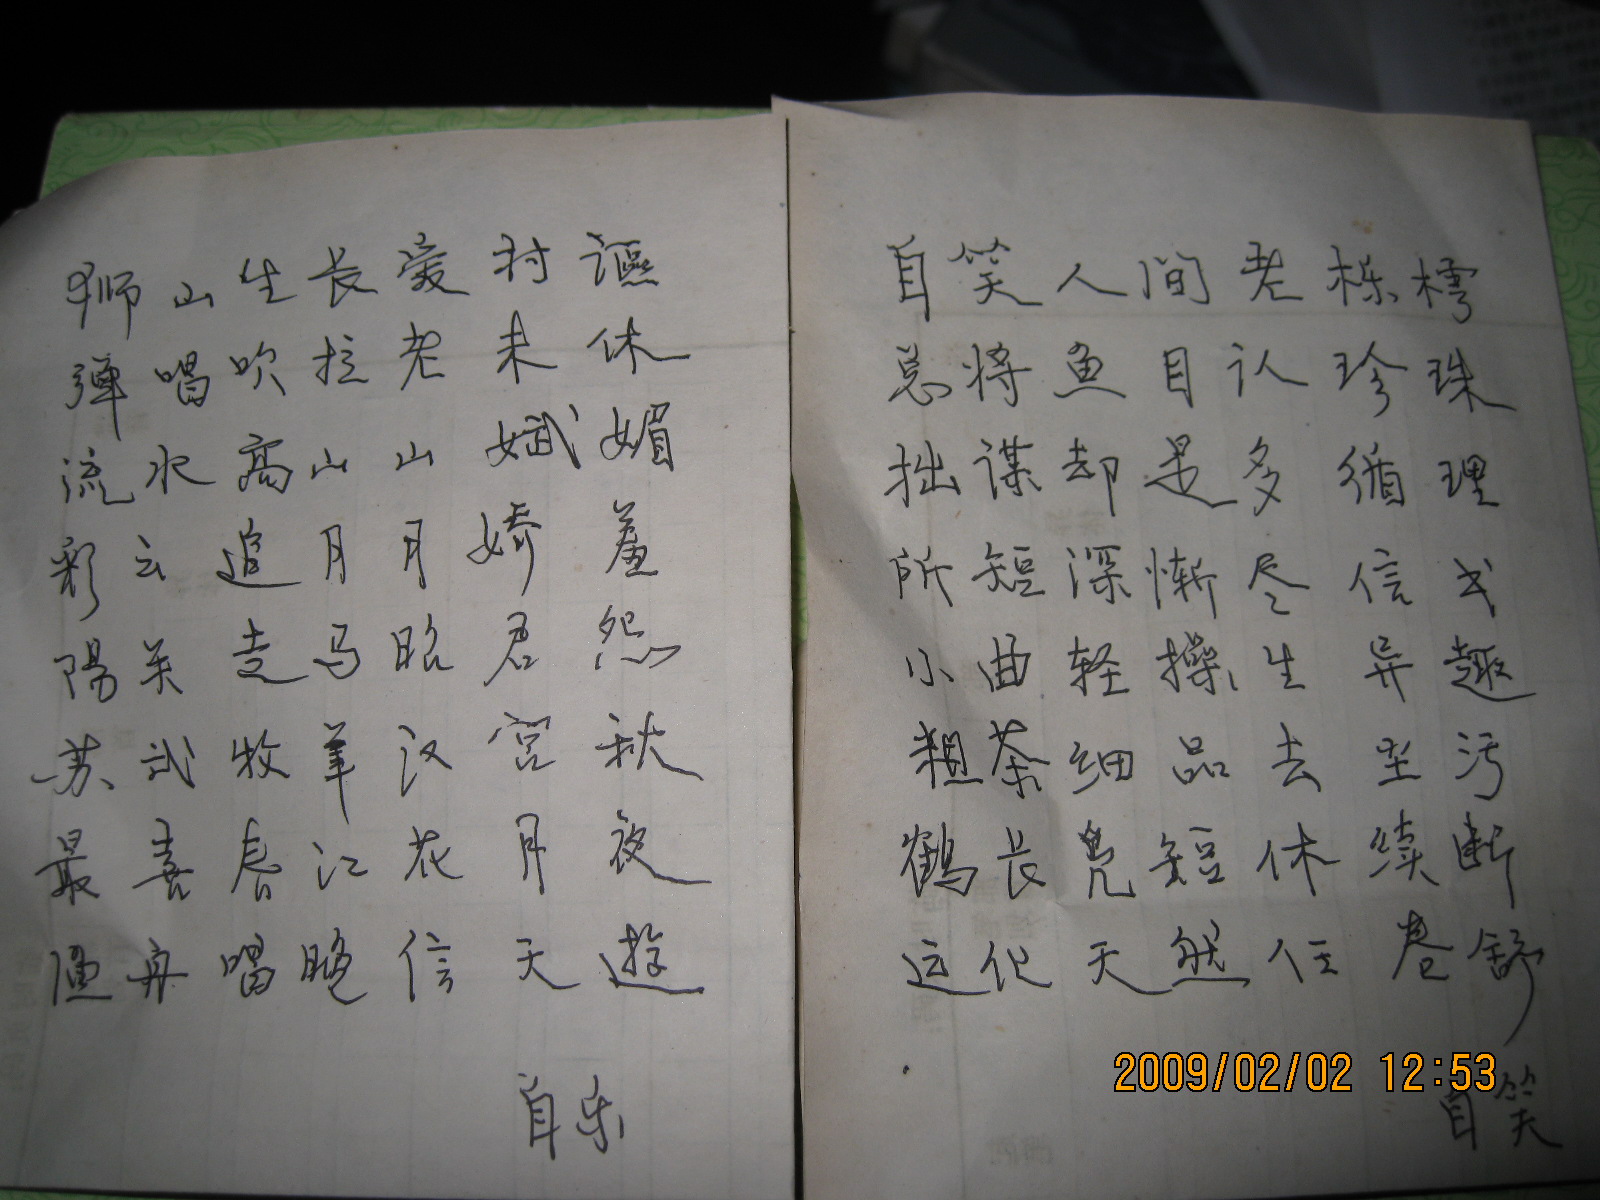 狮山生长爱村讴
弹唱吹拉老未休
流水高山山娬媚
彩云追月月娇羞
陽关走马昭君怨
苏武牧羊汉宫秋
最喜春江花月夜
舟唱晚信天遊
自乐
自笑人间老栎樗
总将鱼目认珍珠
拙谋却是多循理
所短深惭尽信书
小曲轻操生异趣
粗茶细品去尘污
鹤长凫短休续断
运化天然任卷舒
自笑
2009/02/02 12:53